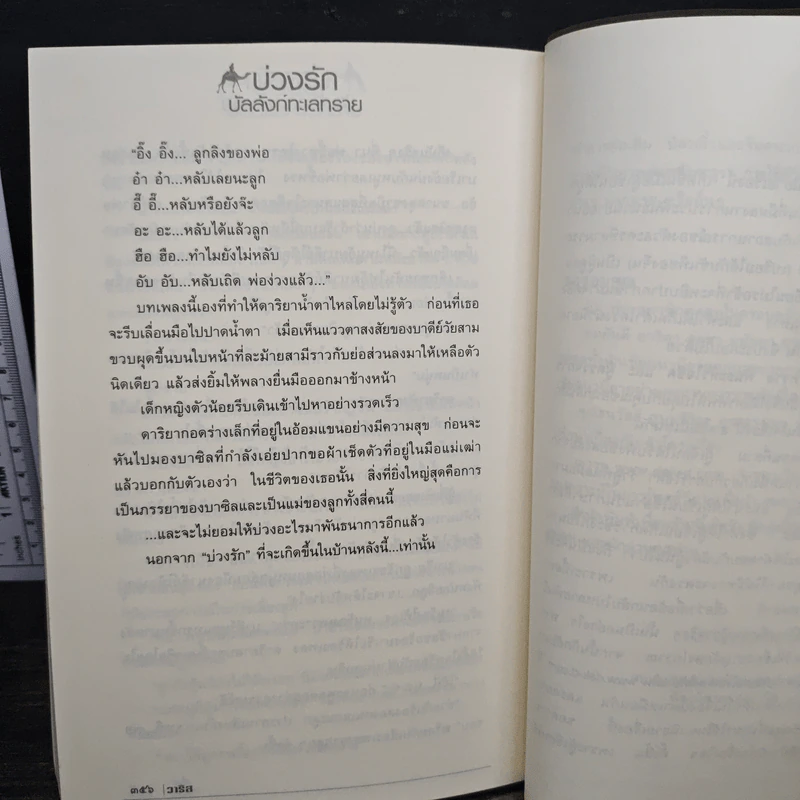 บ่วงรัก
บัลลังก์ทะเลทราย
“อิ๊ง อิ๊ง... ลูกลิงของพ่อ
อำ อำ...หลับเลยนะลูก
อื๊ อื๊...หลับหรือยังจ๊ะ
อะ อะ...หลับได้แล้วลูก
ฮือ ฮือ...ทำไมยังไม่หลับ
อับ อับ...หลับเถิด พ่อง่วงแล้ว...”
บทเพลงนี้เองที่ทำให้ดาริยาน้ำตาไหลโดยไม่รู้ตัว ก่อนที่เธอ
จะรีบเลื่อนมือไปปาดน้ำตา เมื่อเห็นแววตาสงสัยของบาดีย์วัยสาม
ขวบผุดขึ้นบนใบหน้าที่ละม้ายสามีราวกับย่อส่วนลงมาให้เหลือตัว
นิดเดียว แล้วส่งยิ้มให้พลางยื่นมือออกมาข้างหน้า
เด็กหญิงตัวน้อยรีบเดินเข้าไปหาอย่างรวดเร็ว
ดาริยากอดร่างเล็กที่อยู่ในอ้อมแขนอย่างมีความสุข ก่อนจะ
หันไปมองบาซิลที่กำลังเอ่ยปากขอผ้าเช็ดตัวที่อยู่ในมือแม่เฒ่า
แล้วบอกกับตัวเองว่า ในชีวิตของเธอนั้น สิ่งที่ยิ่งใหญ่สุดคือการ
เป็นภรรยาของบาซิลและเป็นแม่ของลูกทั้งสี่คนนี้
...และจะไม่ยอมให้บ่วงอะไรมาพันธนาการอีกแล้ว
นอกจาก “บ่วงรัก” ที่จะเกิดขึ้นในบ้านหลังนี้...เท่านั้น
๓๕๖ | วาริส